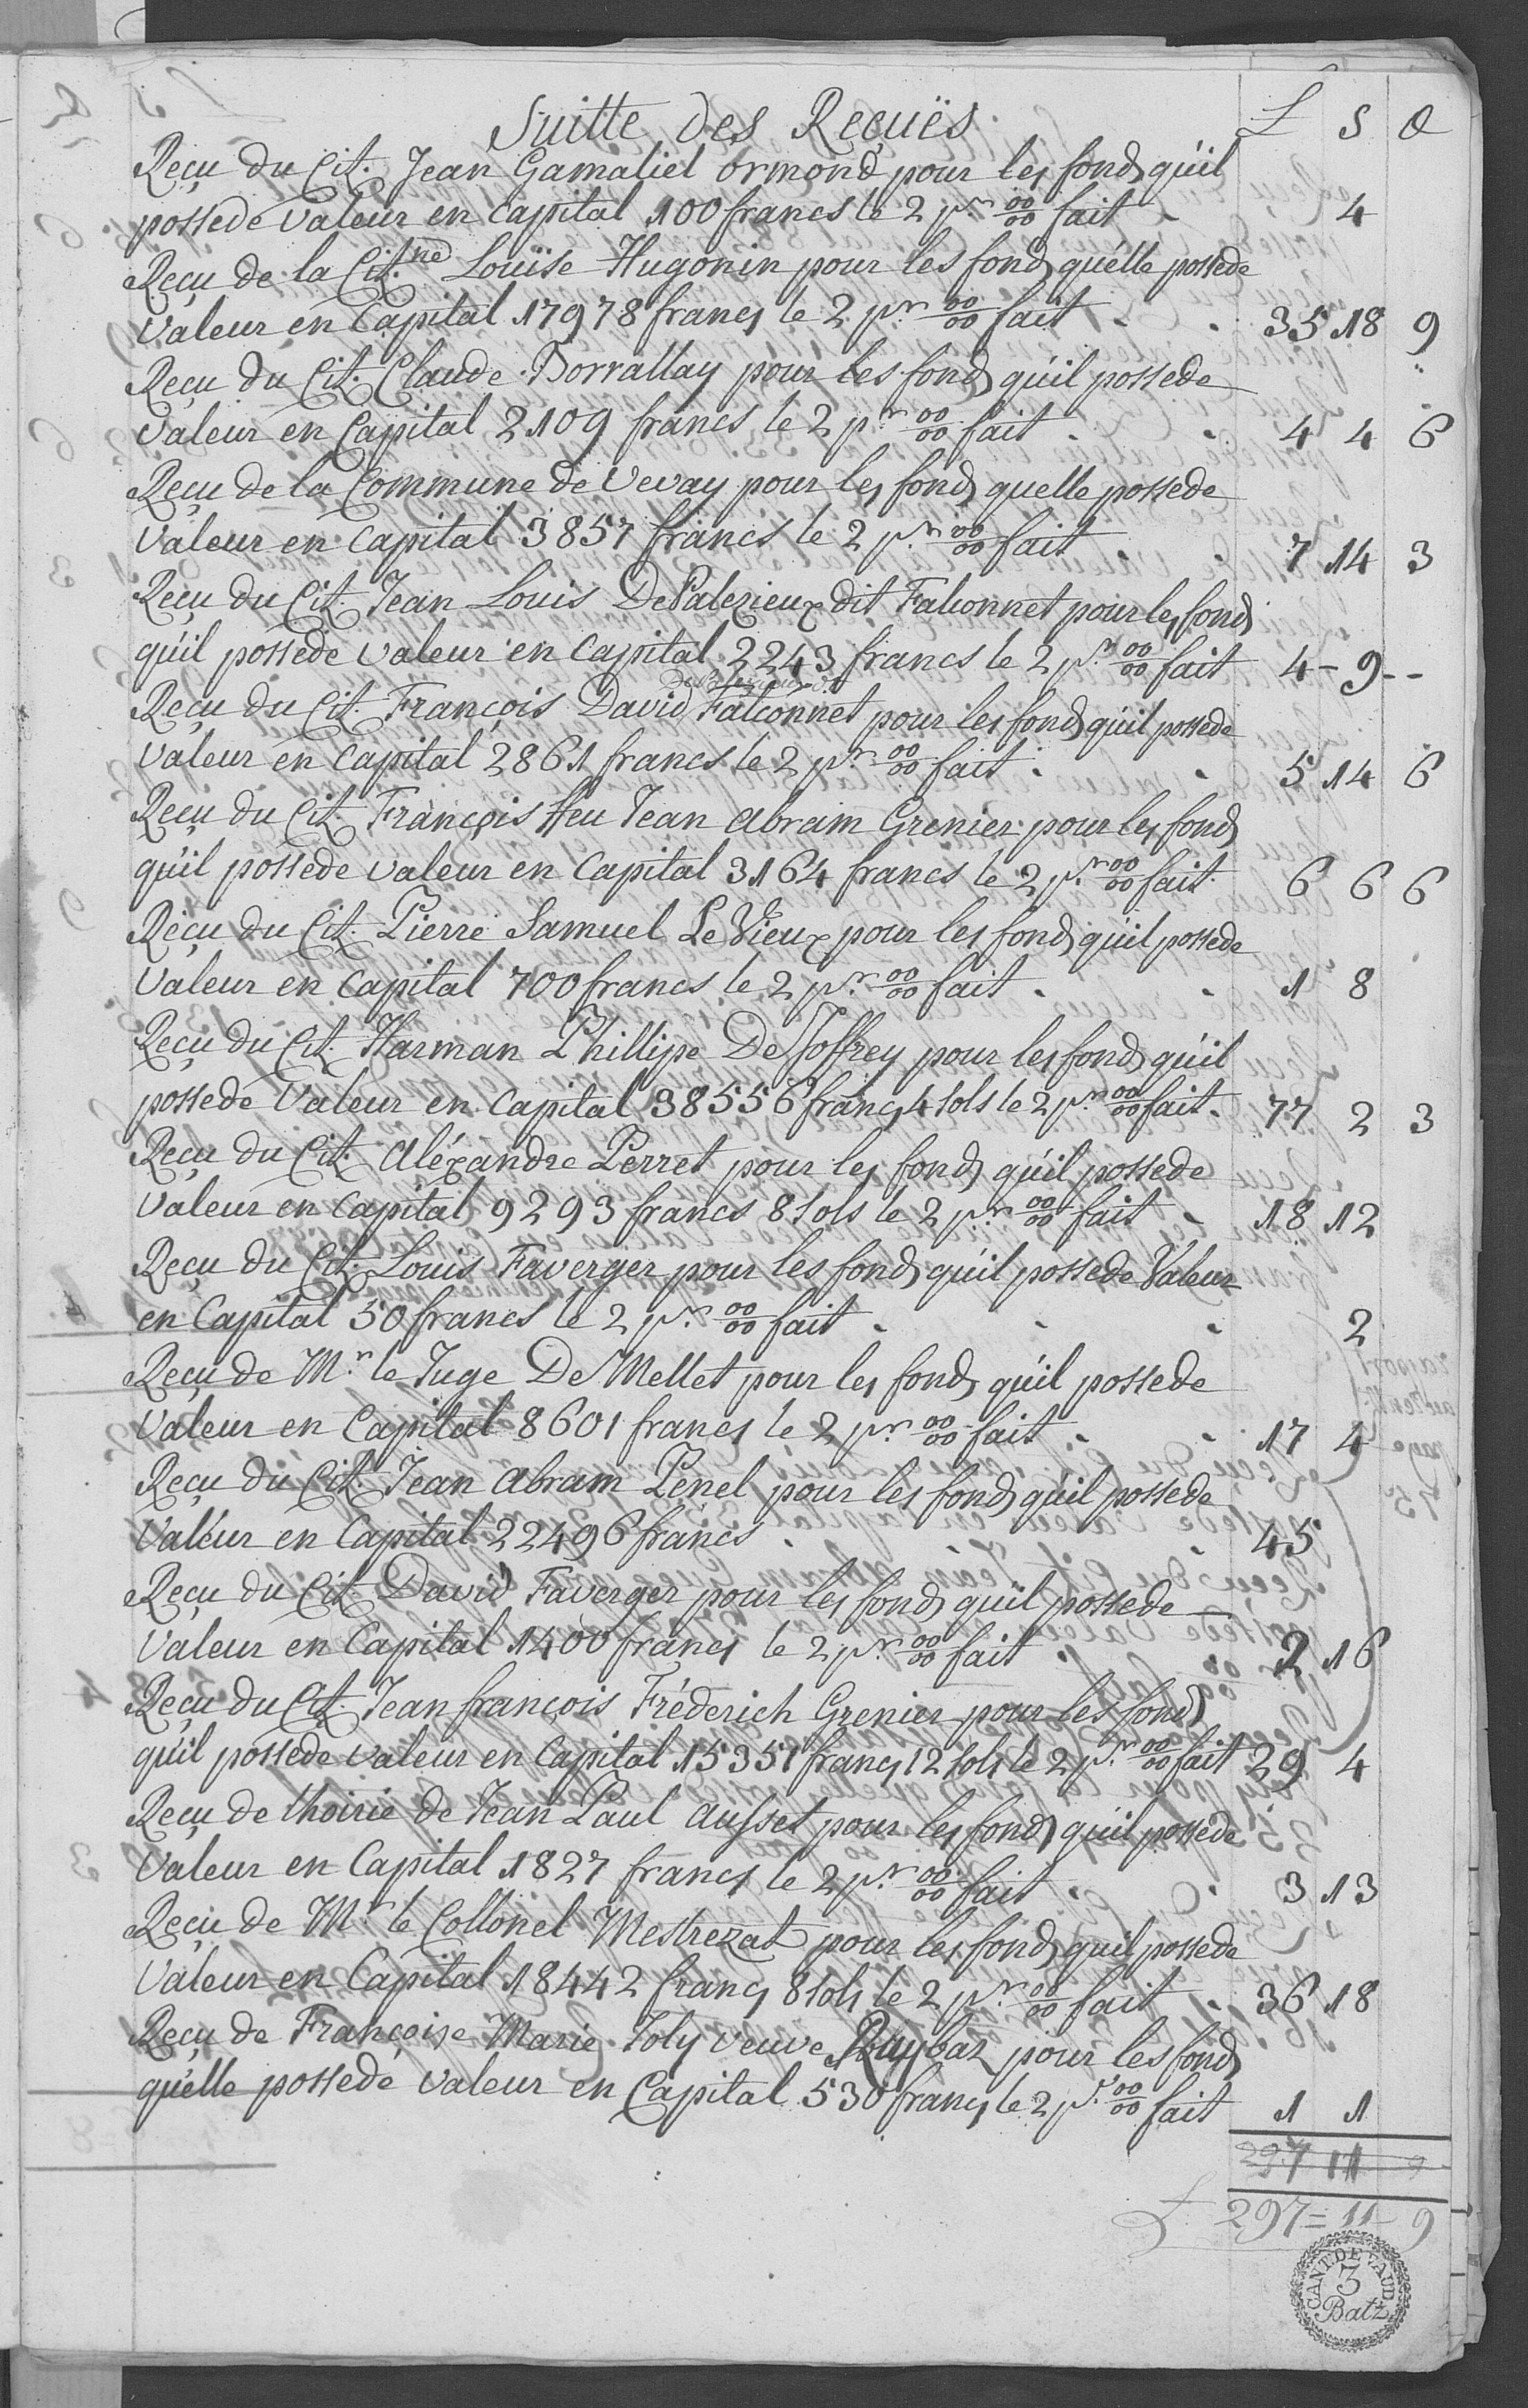 Suitte des Reçuës £ S d
Reçu du Cit. Jean Gamaliel Ormond pour les fonds qu'il
possede valeur en Capital 100 francs le 2 pr 00/00 fait 4
Reçu de la Cit.ne Louïse Hugonin pour les fonds qu'elle possede
Valeur en Capital 17978 francs le 2 pr 00/00 fait 35 18 9
Reçu du Cit. Claude Dorrallay pour les fonds qu'il possede
Valeur en Capital 2109 francs le 2 pr 00/00 fait 4 4 6
Reçu de la Commune de Vevay pour les fonds quelle possede
Valeur en Capital 3857 francs le 2 pr 00/00 fait 7 14 3
Reçu du Cit. Jean Louis De Palezieux dit Falconnet pour les fonds
qu'il possede valeur en Capital 2243 francs le 2 pr 00/00 fait 4 - 9 - -
De Palezieux dit
Reçu du Cit. François David Falconnet pour les fonds qu'il possede
Valeur en Capital 2861 francs le 2 pr 00/00 fait 5 14 6
Reçu du Cit. François ffeu Jean Abram Grenier pour les fonds
qu'il possede valeur en Capital 3164 francs le 2 pr 00/00 fait 6 6 6
Reçu du Cit. Pierre Samuel Le Vieux pour les fonds qu'il possede
Valeur en Capital 700 francs le 2 pr 00/00 fait 1 8
Reçu du Cit. Harman Phillipe De Joffrey pour les fonds qu'il
possede Valeur en Capital 38556 francs 4 sols le 2 pr 00/00 fait 77 2 3
Reçu du Cit. Aléxandre Perret pour les fonds qu'il possede
Valeur en Capital 9293 francs 8 sols le 2 pr 00/00 fait 18 12
Reçu du Cit. Louis Faverger pour les fonds qu'il possede Valeur
en Capital 50 francs le 2 pr 00/00 fait 2
Reçu de Mr le Juge De Mellet pour les fonds qu'il possede
Valeur en Capital 8601 francs le 2 pr 00/00 fait 17 4
Reçu du Cit. Jean Abram Penel pour les fonds qu'il possede
Valéur en Capital 22496 francs 45
Reçu du Cit. David Faverger pour les fonds qu'il possede
Valeur en Capital 1400 francs le 2 pr 00/00 fait 2 16
Reçu du Cit. Jean françois Fréderich Grenier pour les fonds
qu'il possede valeur en Capital 15351 francs 12 sols le 2 pr 00/00 fait 29 4
Reçu de lhoirie de Jean Paul Ausset pour les fonds qu'il possede
Valeur en Capital 1827 francs le 2 pr 00/00 fait 3 13
Reçu de Mr le Collonel Mestrezat pour les fonds qu'il possede
Valeur en Capital 18442 francs 8 sols le 2 pr 00/00 fait 36 18
Reçu de Françoise Marie Joly veuve pour les fonds
qu'elle possede valeur en Capital 530 francs le 2 pr 00/00 fait 1 1
297 11 9
£ 297 = 11 - 9
CANT. DE VAUD
3
Batz